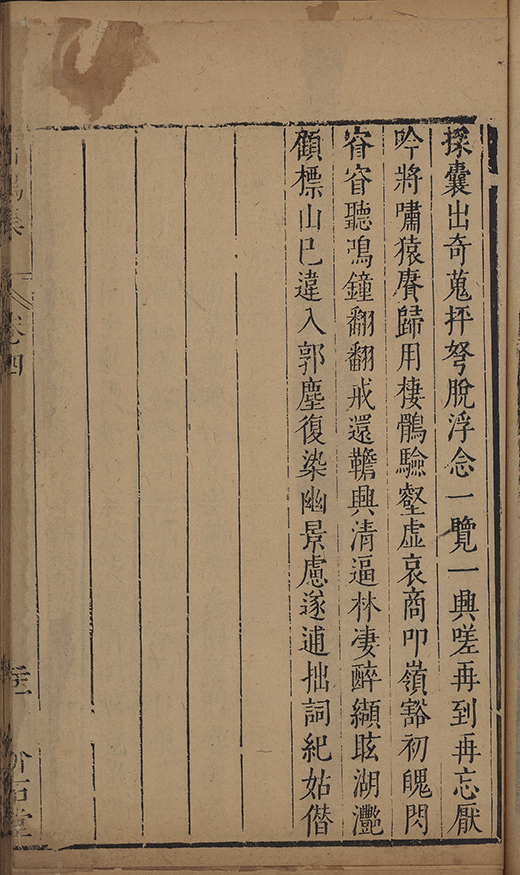 採囊出奇蒐抨弩脫浮念一覽一興嗟再到再忘厭
吟將嘯猿賡歸用棲鶻驗壑虛哀商叩嶺豁初魄閃
窅窅聽鳴鐘翻翻戒還韂興清逼林凄醉纈眩湖灔
顧標山已違入郭塵復染幽景慮遂逋拙詞紀姑僭
集
卷四
介石堂